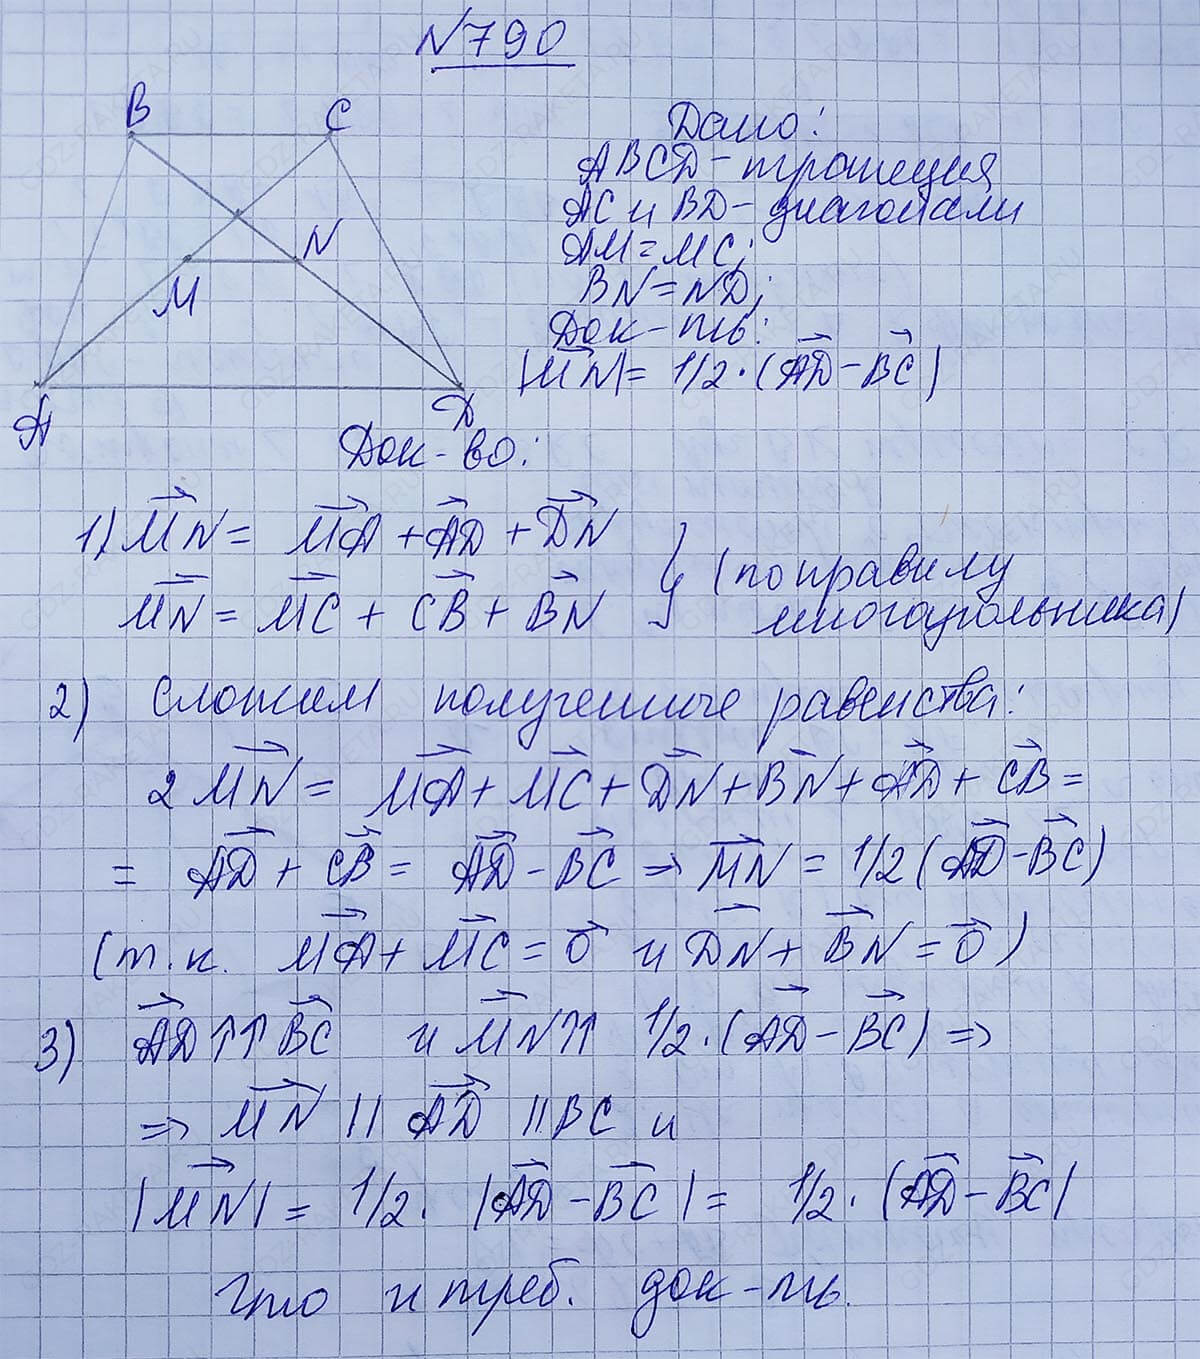 N790
B
C
N
M
A
D
Дано:
ABCD - трапеция
AC и BD - диагонали
AM = MC;
BN = ND;
Док-ть:
|MN| = 1/2 · (AD - BC)
Док-во:
1) MN = MA + AD + DN
MN = MC + CB + BN } (по правилу
многоугольника)
2) Сложим полученные равенства:
2 MN = MA + MC + DN + BN + AD + CB =
= AD + CB = AD - BC ⇒ MN = 1/2 (AD - BC)
(т.к. MA + MC = 0 и DN + BN = 0)
3) AD ↑↑ BC и MN ↑↑ 1/2 · (AD - BC) ⇒
⇒ MN || AD || BC и
|MN| = 1/2 · |AD - BC| = 1/2 · (AD - BC|
Что и треб. док-ть.